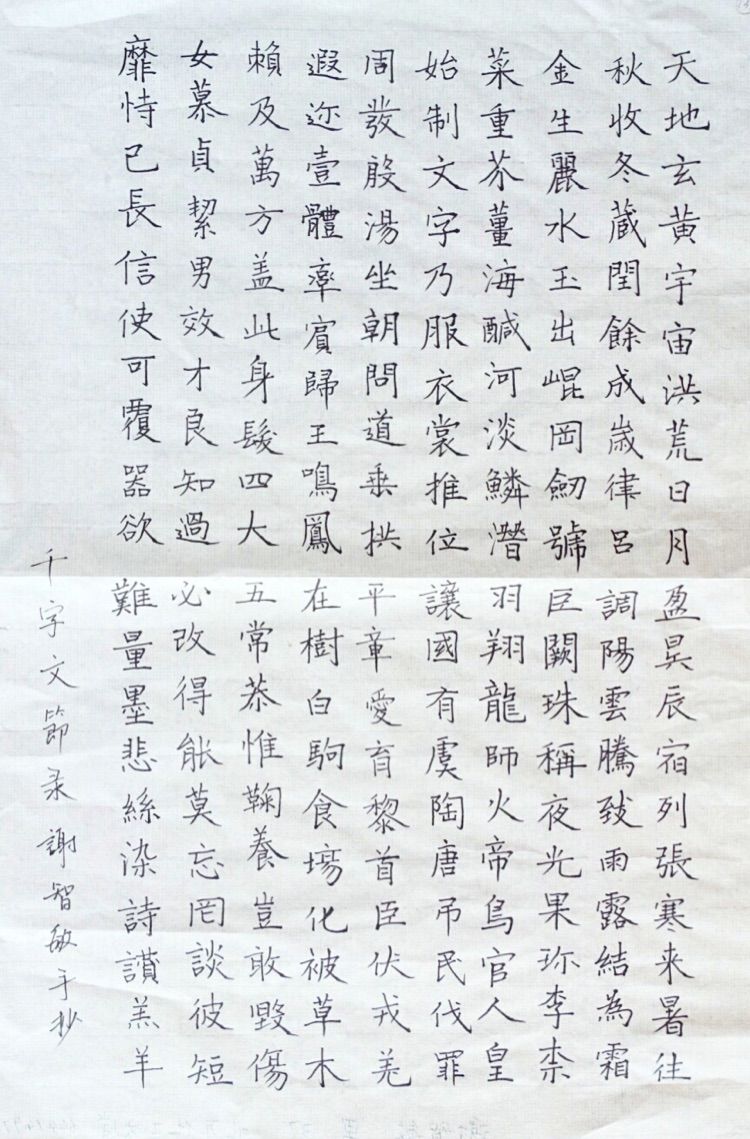 天地玄黃宇宙洪荒日月盈昃辰宿列張寒来暑往
秋收冬蔵閏餘成歲律呂調陽雲騰致雨露結為霜
金生麗水玉出崐岡劒號巨闕珠稱夜光果珎李柰
菜重芥薑海鹹河淡鱗潛羽翔龍師火帝鳥官人皇
始制文字乃服衣裳推位讓國有虞陶唐吊民伐罪
周發殷湯坐朝問道垂拱平章愛育黎首臣伏戎羌
遐迩壹體率賓歸王鳴鳳在樹白駒食場化被草木
賴及萬方盖此身髮四大五常恭惟鞠養豈敢毀傷
女慕貞絜男效才良知過必改得能莫忘罔談彼短
靡恃己長信使可覆器欲難量墨悲絲染詩讃羔羊
千字文節录謝智敏手抄